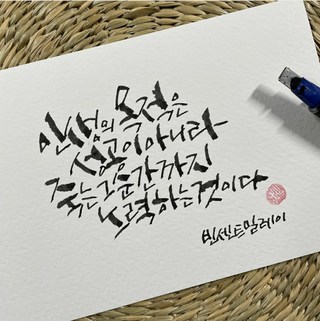 인생의 목적은
성공이 아니라
죽는 그 순간까지
노력하는 것이다
빈센트 밀레이